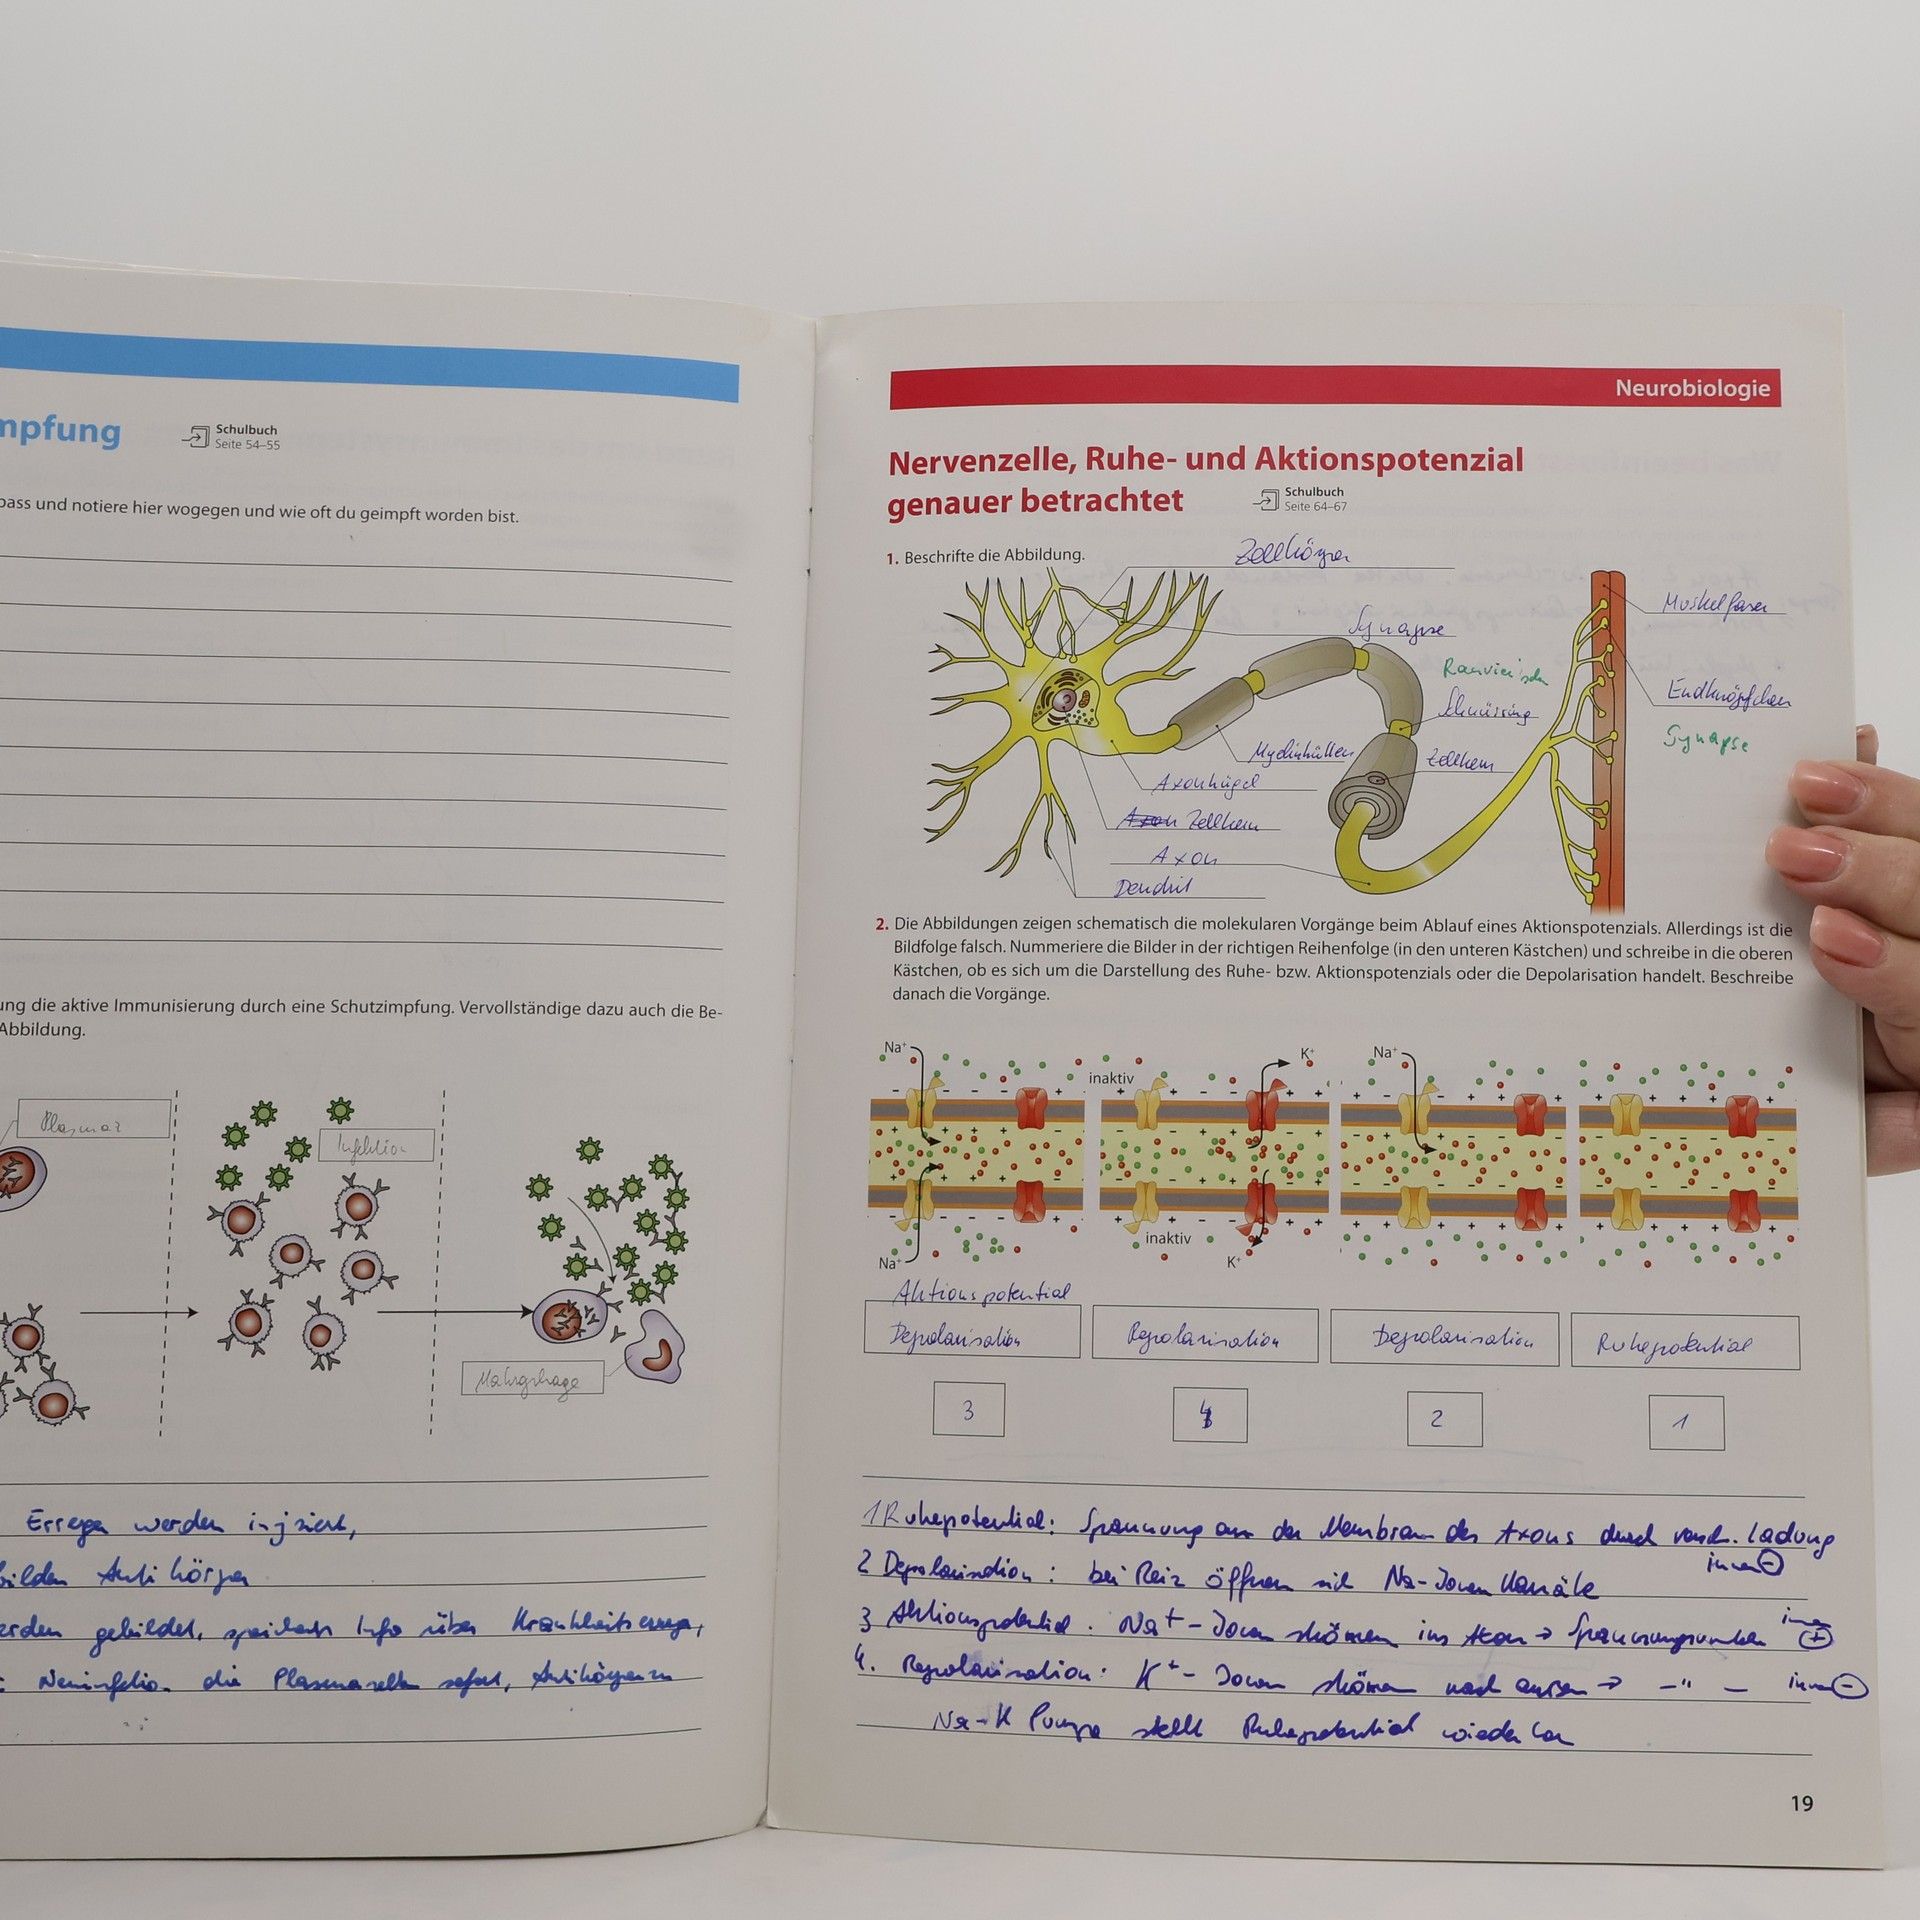 mpfung
Schulbuch
Seite 54–55
pass und notiere hier wogegen und wie oft du geimpft worden bist.
ung die aktive Immunisierung durch eine Schutzimpfung. Vervollständige dazu auch die Be-
Abbildung.
Infektion
Erreger werden injziert,
bilden Antikörper
erden gebildet, speichern Info über Krankheitserreger,
die Plasmazellen sofort, Antikörper zu
Neurobiologie
Nervenzelle, Ruhe- und Aktionspotenzial
genauer betrachtet
Schulbuch
Seite 64–67
1. Beschrifte die Abbildung.
Zellkörper
Synapse
Muskelfaser
Ranvier'sche
Schnürring
Endknöpfchen
Synapse
Myelinhüllen
Zellkern
Axonhügel
Axon Zellkern
Axon
Dendrit
2. Die Abbildungen zeigen schematisch die molekularen Vorgänge beim Ablauf eines Aktionspotenzials. Allerdings ist die
Bildfolge falsch. Nummeriere die Bilder in der richtigen Reihenfolge (in den unteren Kästchen) und schreibe in die oberen
Kästchen, ob es sich um die Darstellung des Ruhe- bzw. Aktionspotenzials oder die Depolarisation handelt. Beschreibe
danach die Vorgänge.
Na⁺ K⁺ Na⁺
inaktiv
inaktiv
Na⁺ K⁺
Aktionspotential
Depolarisation Repolarisation Depolarisation Ruhepotential
3 4 2 1
1 Ruhepotential: Spannung an der Membran des Axons durch versch. Ladung
innen ⊖
2 Depolarisation: bei Reiz öffnen sich Na-Ionen Kanäle
innen
3 Aktionspotential. Na⁺-Ionen strömen ins Axon → Spannungsumkehr ⊕
4. Repolarisation: K⁺-Ionen strömen nach aussen → –"– innen ⊖
Na-K Pumpe stellt Ruhepotential wieder her
19